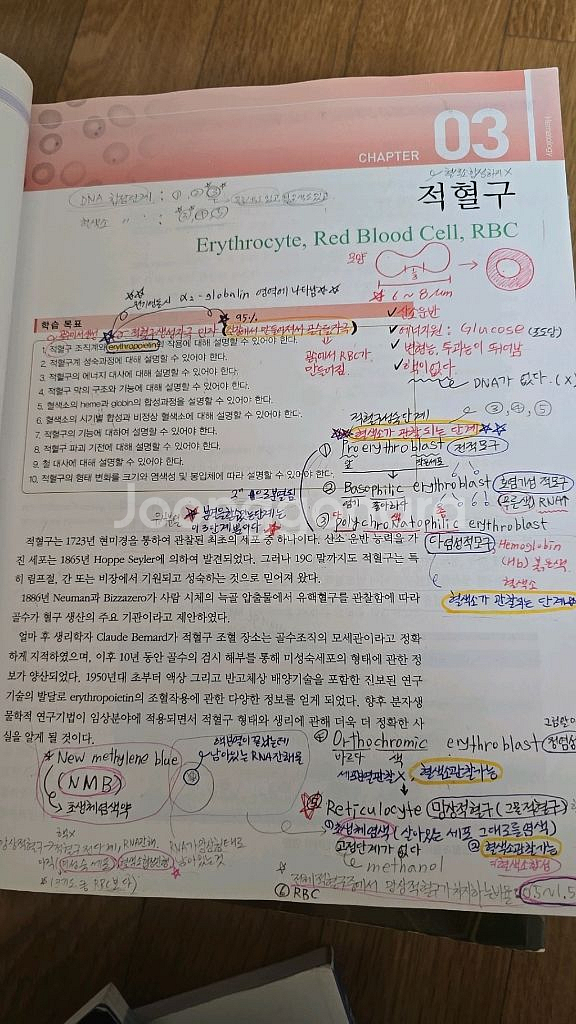 Hematology
CHAPTER 03
적혈구
Erythrocyte, Red Blood Cell, RBC
DNA 합성단계 : ①, ②, ③
혈색소 〃 : ③, ④, ⑤
모양
6~8μm
전기영동시 α2-globulin 영역에 나타남
95%
적혈구생성자극인자
학습 목표
1. 적혈구 조직계와 erythropoietin의 작용에 대해 설명할 수 있어야 한다.
2. 적혈구계 성숙과정에 대해 설명할 수 있어야 한다.
3. 적혈구의 에너지 대사에 대해 설명할 수 있어야 한다.
4. 적혈구 막의 구조와 기능에 대해 설명할 수 있어야 한다.
5. 혈색소의 heme과 globin의 합성과정을 설명할 수 있어야 한다.
6. 혈색소의 시기별 합성과 비정상 혈색소에 대해 설명할 수 있어야 한다.
7. 적혈구의 기능에 대하여 설명할 수 있어야 한다.
8. 적혈구 파괴 기전에 대해 설명할 수 있어야 한다.
9. 철 대사에 대해 설명할 수 있어야 한다.
10. 적혈구의 형태 변화를 크기와 염색성 및 봉입체에 따라 설명할 수 있어야 한다.
골수에서 RBC가
만들어짐
산소운반
에너지원 : Glucose (포도당)
변형능, 투과능이 뛰어남
핵이 없다
DNA가 없다. (X)
적혈구성숙단계
③, ④, ⑤
혈색소가 관찰되는 단계
① Pro erythroblast 전적모구
② Basophilic erythroblast 호염기성 적모구
염기 좋아하다
(푸른색) RNA↑
③ polychromatophilic erythroblast
다염성적모구
Hemoglobin
(Hb) 붉은색
혈색소
혈색소가 관찰되는 단계
분열을하는단계는
이 3단계뿐이다
적혈구는 1723년 현미경을 통하여 관찰된 최초의 세포 중 하나이다. 산소 운반 능력을 가
진 세포는 1865년 Hoppe Seyler에 의하여 발견되었다. 그러나 19C 말까지도 적혈구는 특
히 림프절, 간 또는 비장에서 기원되고 성숙하는 것으로 믿어져 왔다.
1886년 Neuman과 Bizzazero가 사람 시체의 늑골 압출물에서 유핵혈구를 관찰함에 따라
골수가 혈구 생산의 주요 기관이라고 제안하였다.
얼마 후 생리학자 Claude Bernard가 적혈구 조혈 장소는 골수조직의 모세관이라고 정확
하게 지적하였으며, 이후 10년 동안 골수의 검시 해부를 통해 미성숙세포의 형태에 관한 정
보가 양산되었다. 1950년대 초부터 액상 그리고 반고체상 배양기술을 포함한 진보된 연구
기술의 발달로 erythropoietin의 조혈작용에 관한 다양한 정보를 얻게 되었다. 향후 분자생
물학적 연구기법이 임상분야에 적용되면서 적혈구 형태와 생리에 관해 더욱 더 정확한 사
실을 알게 될 것이다.
New methylene blue
(NMB)
초생체염색약
남아있는 RNA잔해물
④ Orthochromic erythroblast 정염성
바르다 색
세포분열관찰X, 혈색소관찰가능
⑤ Reticulocyte 망상적혈구(그물적혈구)
① 초생체염색 (살아있는 세포 그대로를염색)
고정단계가 없다
② 혈색소관찰가능
methanol
혈색소합성
전체적혈구중에서 망상적혈구가 차지하는비율 : 0.5~1.5
⑥ RBC